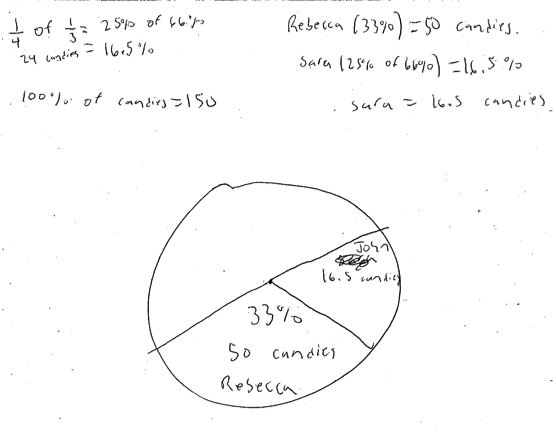 1/4 of 1/3 = 25% of 66%
24 candies = 16.5%
100% of candies = 150
Rebecca (33%) = 50 candies.
Sara (25% of 66%) = 16.5%
Sara = 16.5 candies
John
16.5 candies
33%
50 candies
Rebecca